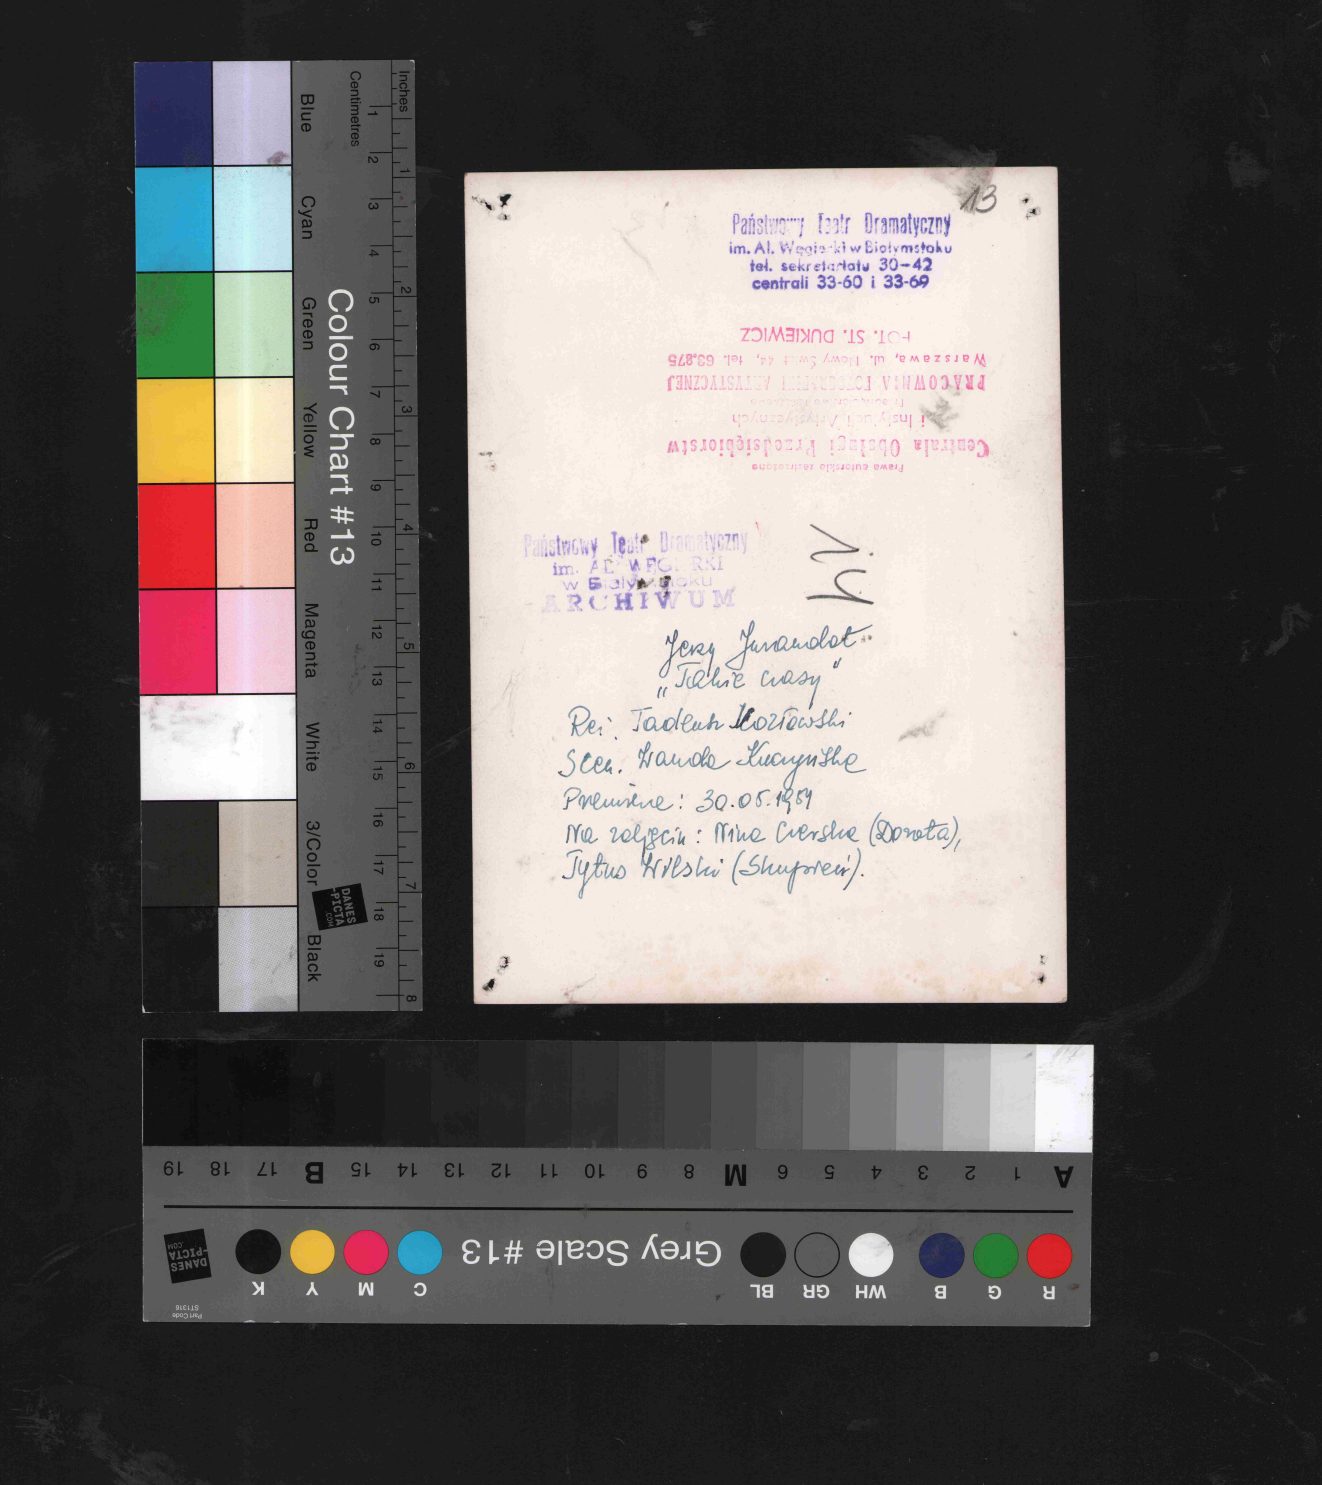 Blue
Cyan
Green
Yellow
Red
Magenta
White
3/Color
Black
Colour Chart #13
Centimetres
1 2 3 4 5 6 7 8 9 10 11 12 13 14 15 16 17 18 19
Inches
1 2 3 4 5 6 7 8
DANES
-PICTA
.COM
13
Państwowy Teatr Dramatyczny
im. Al. Węgierki w Białymstoku
tel. sekretariatu 30-42
centrali 33-60 i 33-69
Prawa autorskie zastrzeżone
Centrala Obsługi Przedsiębiorstw
i Instytucji Artystycznych
PRACOWNIA FOTOGRAFIKI ARTYSTYCZNEJ
Warszawa, ul. Nowy Świat 44, tel. 63.275
FOT. ST. DUKIEWICZ
Państwowy Teatr Dramatyczny
im. AL. WĘGIERKI
w Białymstoku
ARCHIWUM
Jerzy Jurandot
„Takie czasy”
Reż. Tadeusz Kozłowski
Scen. Wanda
Premiera: 30.05.1954
Na zdjęciu: Nina Czerska (Dorota),
Tytus Wilski (Skupień).
A 1 2 3 4 5 6 M 8 9 10 11 12 13 14 15 B 17 18 19
R G B WH GR BL
Grey Scale #13
C M Y K
DANES
-PICTA
.COM
Part Code
ST1316